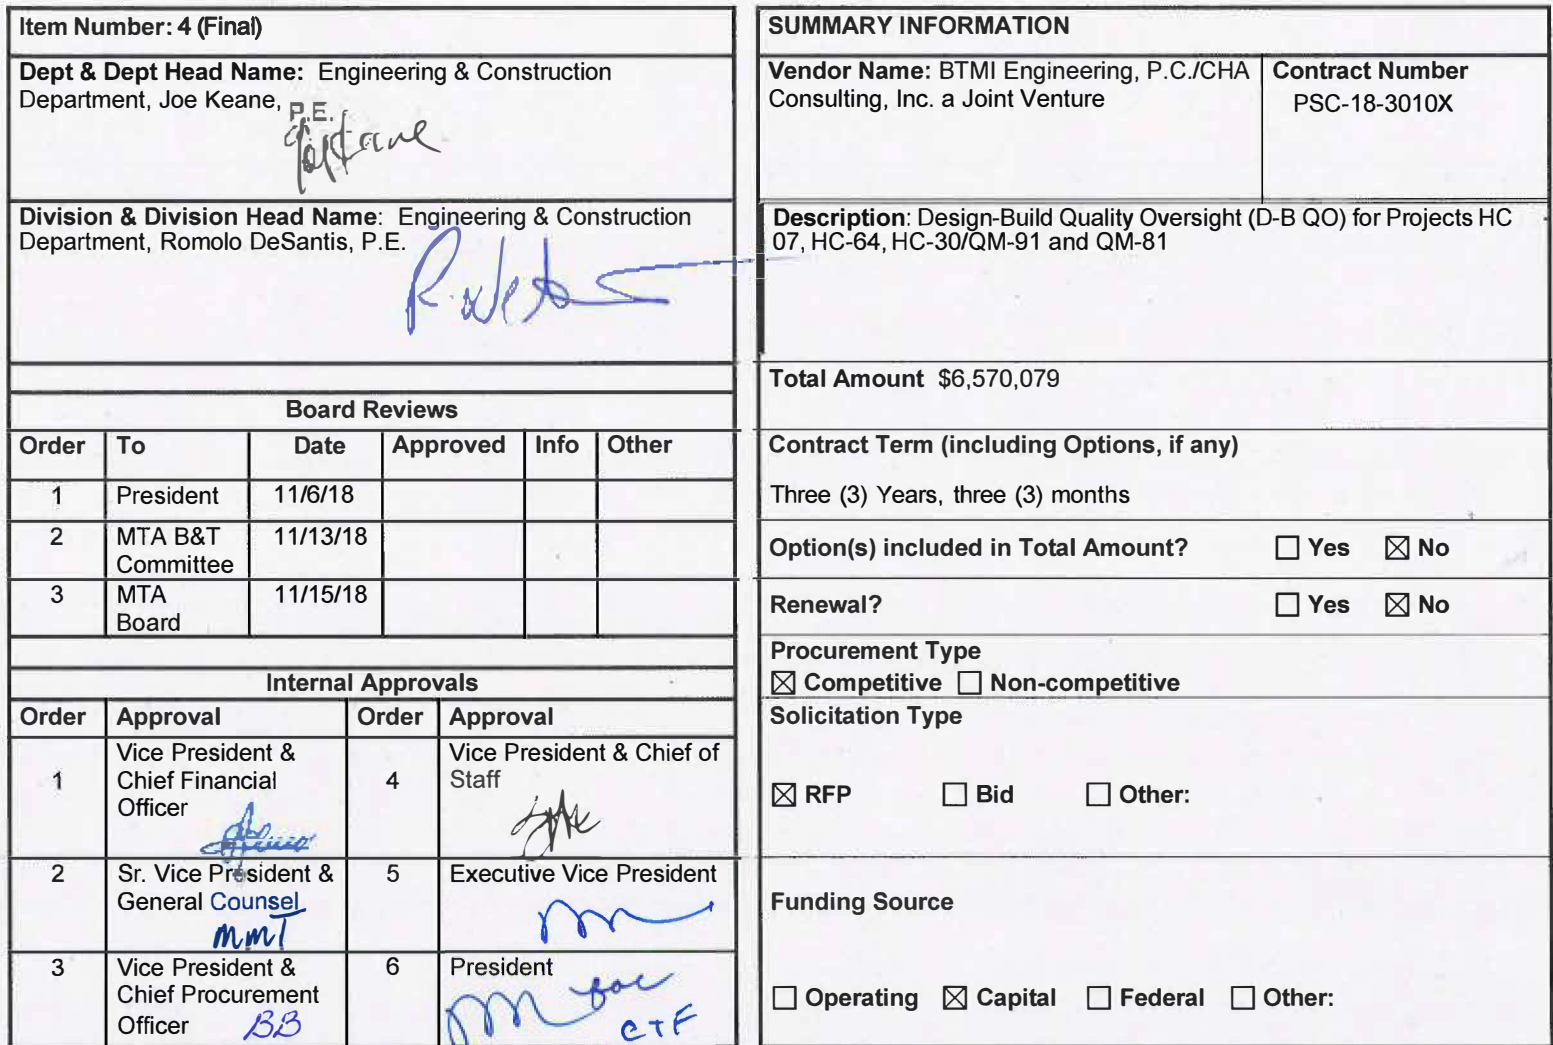 Item Number: 4 (Final)
Dept & Dept Head Name: Engineering & Construction
Department, Joe Keane,
P.E.
Division & Division Head Name: Engineering & Construction
Department, Romolo DeSantis, P.E.
Board Reviews
Order To Date Approved Info Other
1 President 11/6/18
2 MTA B&T 11/13/18
Committee
3 MTA 11/15/18
Board
Internal Approvals
Order Approval Order Approval
Vice President & Vice President & Chief of
1 Chief Financial 4 Staff
Officer
2 Sr. Vice President & 5 Executive Vice President
General Counsel
MMT
3 Vice President & 6 President
Chief Procurement for
Officer BB CTF
SUMMARY INFORMATION
Vendor Name: BTMI Engineering, P.C./CHA Contract Number
Consulting, Inc. a Joint Venture PSC-18-3010X
Description: Design-Build Quality Oversight (D-B QO) for Projects HC
07, HC-64, HC-30/QM-91 and QM-81
Total Amount $6,570,079
Contract Term (including Options, if any)
Three (3) Years, three (3) months
Option(s) included in Total Amount? ☐ Yes ☒ No
Renewal? ☐ Yes ☒ No
Procurement Type
☒ Competitive ☐ Non-competitive
Solicitation Type
☒ RFP ☐ Bid ☐ Other:
Funding Source
☐ Operating ☒ Capital ☐ Federal ☐ Other: